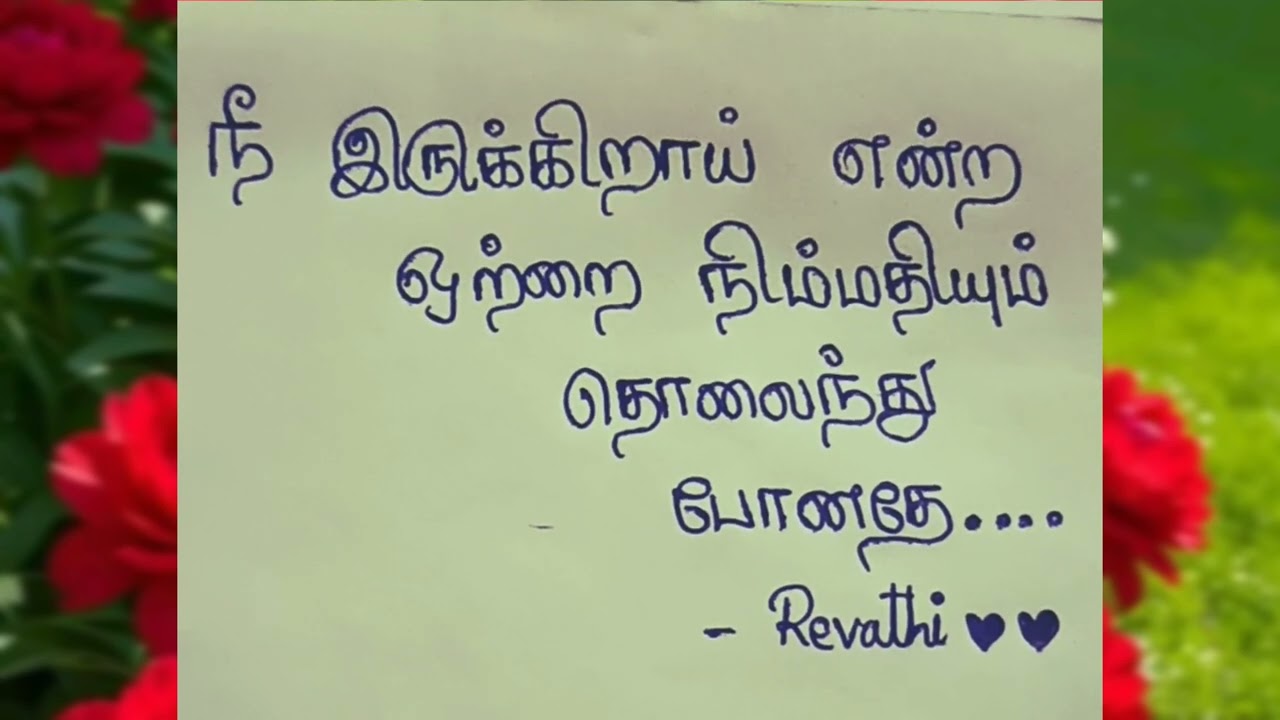 நீ இருக்கிறாய் என்ற
ஒற்றை நிம்மதியும்
தொலைந்து
போனதே....
- Revathi ♥♥